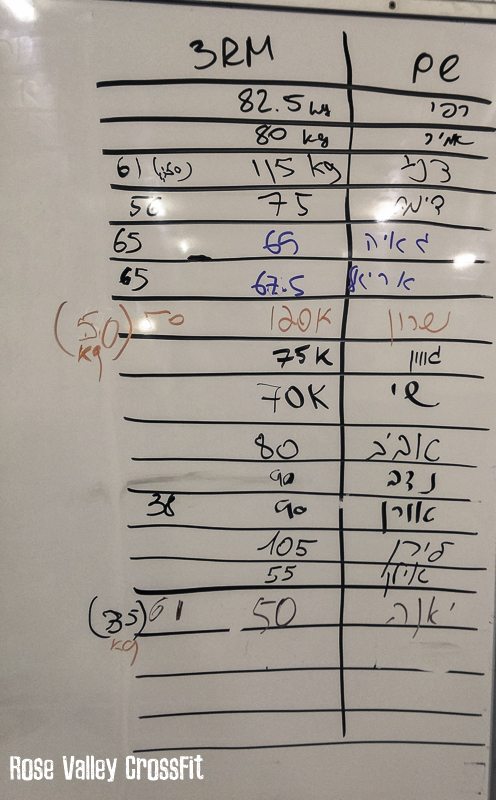 שם 3RM
רפי 82.5 kg
אמיר 80 kg
דני 115 kg 61
דימה 75
גאיה 65
אריאל 67.5 65
שרון 120K 50 (50) kg
75K
שי 70K
אביב 80
נדב 90
אורן 90 38
לירן 105
אילן 55
יאנה 50 61 (35) kg
Rose Valley CrossFit